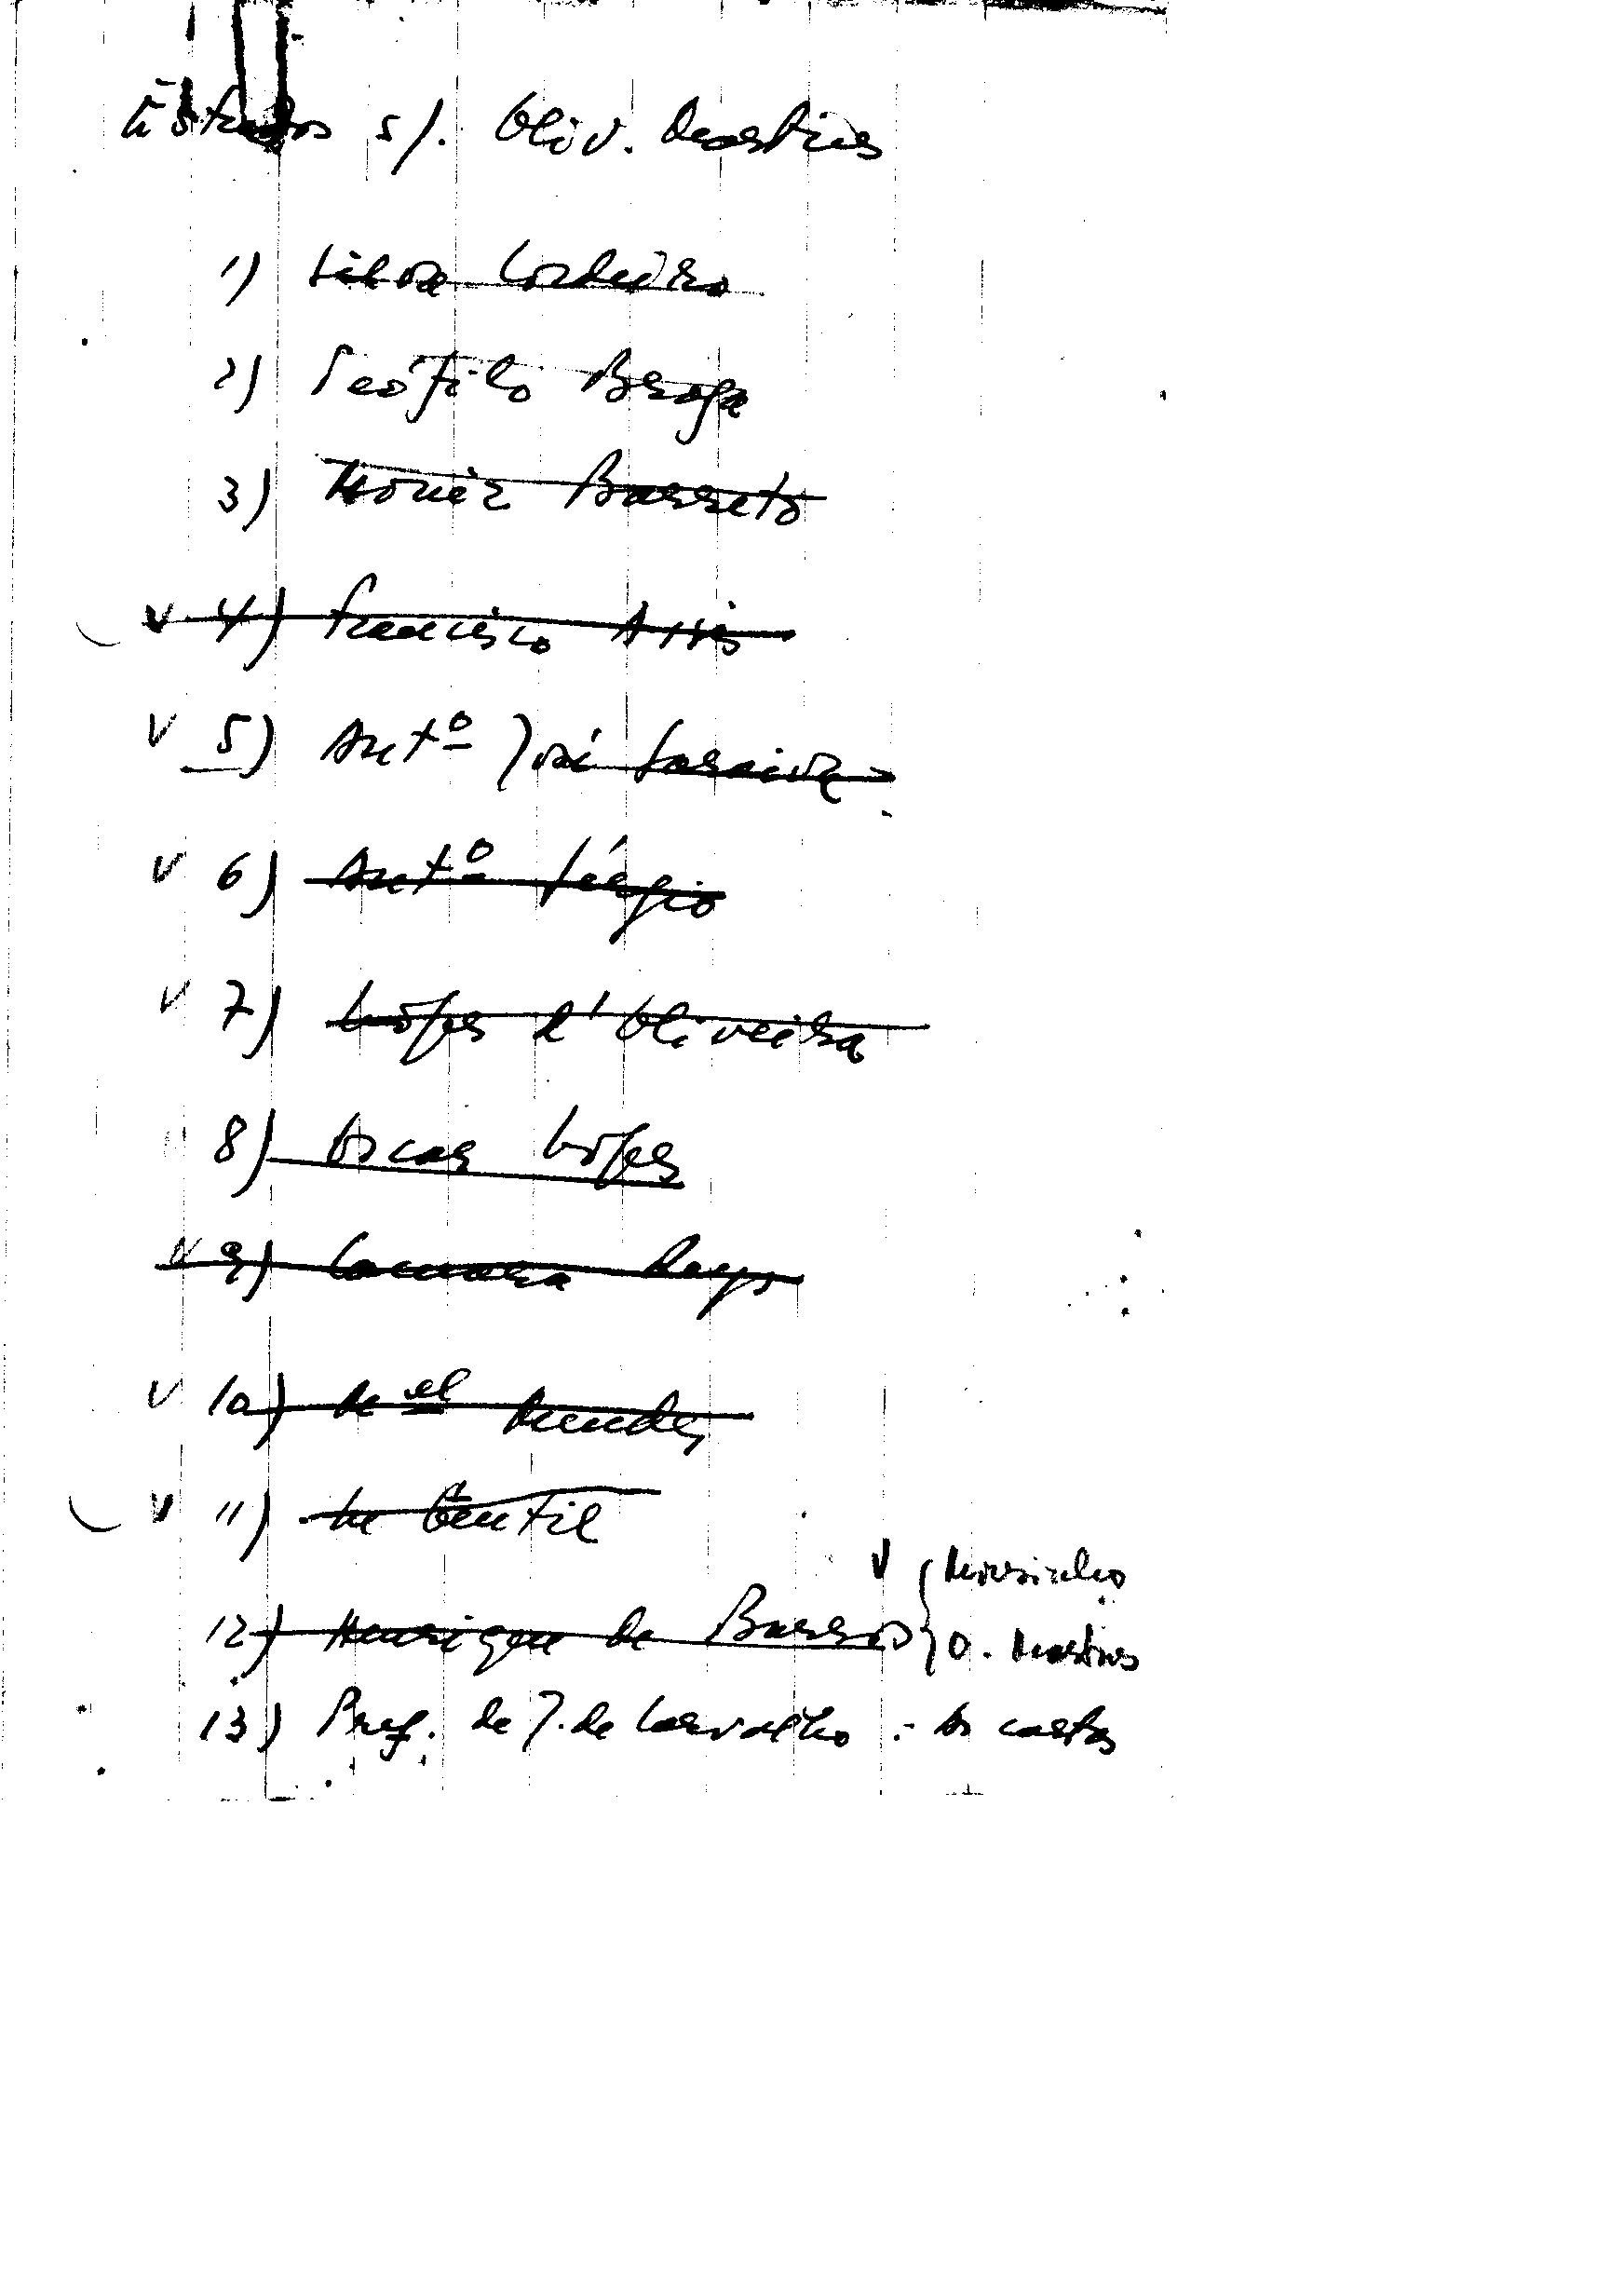 Estudos s/. Oliv. Martins
1) Silva Cordeiro
2) Teófilo Braga
3) Moniz Barreto
v 4) Francisco Assis
v 5) Antº José Saraiva
v 6) Antº Sérgio
v 7) Lopes d'Oliveira
8) Oscar Lopes
v 9) Camara Reys
v 10) Mel Mendes
v 11) Le Gentil
v { Mousinho
12) Henrique de Barros { O. Martins
13) Pref. de J. de Carvalho :- às cartas